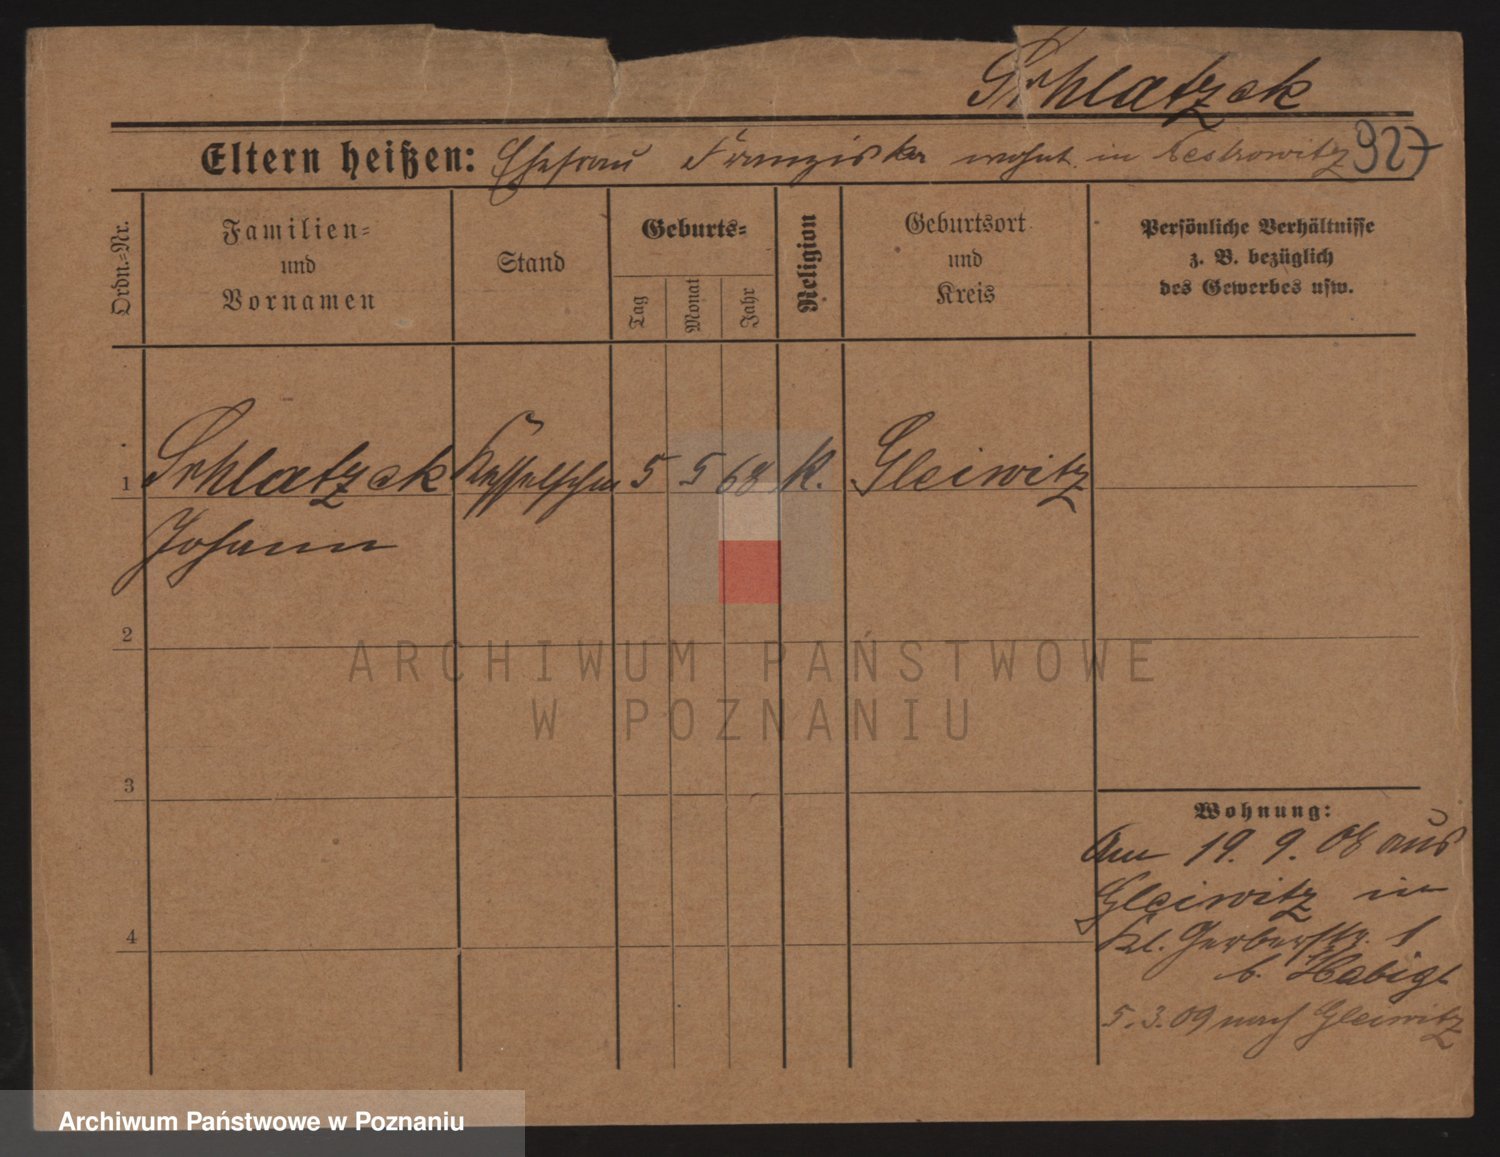 Schlatzek
Eltern heißen: Ehefrau Franziska wohnt in 927
Ordn.=Nr.
Familien=
und
Vornamen
Stand
Geburts=
Tag
Monat
Jahr
Religion
Geburtsort
und
Kreis
Persönliche Verhältnisse
z. B. bezüglich
des Gewerbes usw.
1 Schlatzek Kesselschm 5 5 68 K. Gleiwitz
Johann
2
ARCHIWUM PAŃSTWOWE
W POZNANIU
3
Wohnung:
Am 19. 9. 08 aus
Gleiwitz in
4
Kl. Gerberstr. 1
b. Habigt
5.3.09 nach Gleiwitz
Archiwum Państwowe w Poznaniu